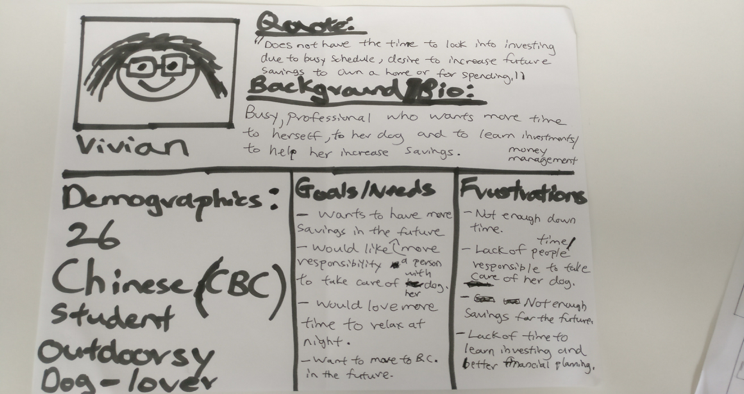 Quote:
"Does not have the time to look into investing
due to busy schedule, desire to increase future
savings to own a home or for spending."
Background/Bio:
Busy, professional who wants more time
to herself, to her dog and to learn investments/
money
management
to help her increase savings.
Vivian
Demographics:
26
Chinese (CBC)
Student
Outdoorsy
Dog-lover
Goals/Needs
- Wants to have more
savings in the future
- Would like more
responsibility a person
with
to take care of her dog.
- Would love more
time to relax at
night.
- Want to move to B.C.
in the future.
Frustrations
- Not enough down
time.
- Lack of time/
people
responsible to take
care of her dog.
- Not enough
savings for the future
- Lack of time to
learn investing and
better financial planning.